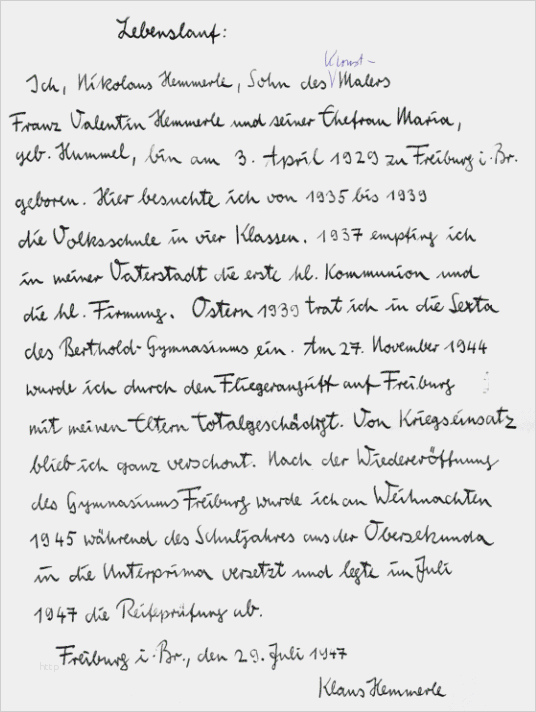 Lebenslauf:
Kunst-
Ich, Nikolaus Hemmerle, Sohn des Malers
Franz Valentin Hemmerle und seiner Ehefrau Maria,
geb. Hummel, bin am 3. April 1929 zu Freiburg i. Br.
geboren. Hier besuchte ich von 1935 bis 1939
die Volksschule in vier Klassen. 1937 empfing ich
in meiner Vaterstadt die erste hl. Kommunion und
die hl. Firmung. Ostern 1939 trat ich in die Sexta
des Berthold-Gymnasiums ein. Am 27. November 1944
wurde ich durch den Fliegerangriff auf Freiburg
mit meinen Eltern totalgeschädigt. Von Kriegseinsatz
blieb ich ganz verschont. Nach der Wiedereröffnung
des Gymnasiums Freiburg wurde ich an Weihnachten
1945 während des Schuljahres aus der Obersekunda
in die Unterprima versetzt und legte im Juli
1947 die Reifeprüfung ab.
Freiburg i. Br., den 29. Juli 1947
Klaus Hemmerle